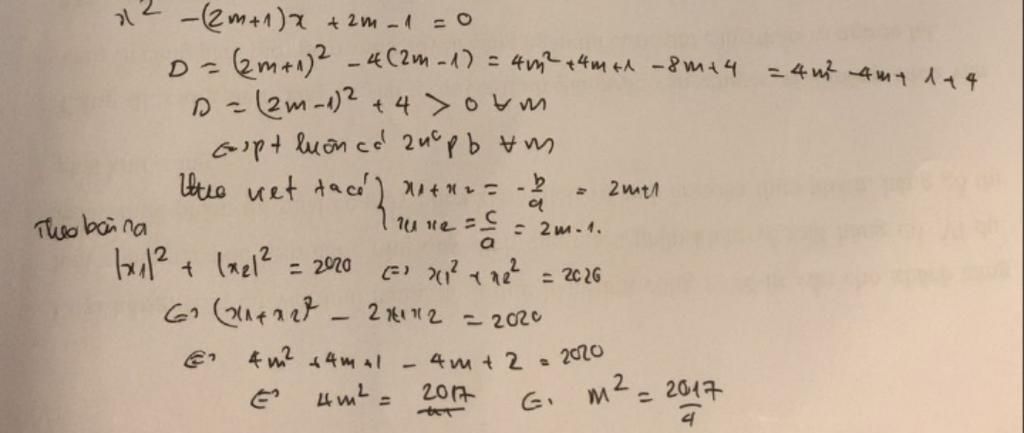 x² - (2m+1)x + 2m - 1 = 0
D = (2m+1)² - 4(2m-1) = 4m² + 4m + 1 - 8m + 4 = 4m² - 4m + 1 + 4
D = (2m-1)² + 4 > 0 ∀m
⇔ pt luôn có 2 n⁰ pb ∀m
theo viet ta có { x1 + x2 = -b/a = 2m+1
x1 x2 = c/a = 2m-1.
Theo bài ra
|x1|² + |x2|² = 2020 ⇔ x1² + x2² = 2020
⇔ (x1 + x2)² - 2x1x2 = 2020
⇔ 4m² + 4m + 1 - 4m + 2 = 2020
⇔ 4m² = 2017 ⇔ m² = 2017/4